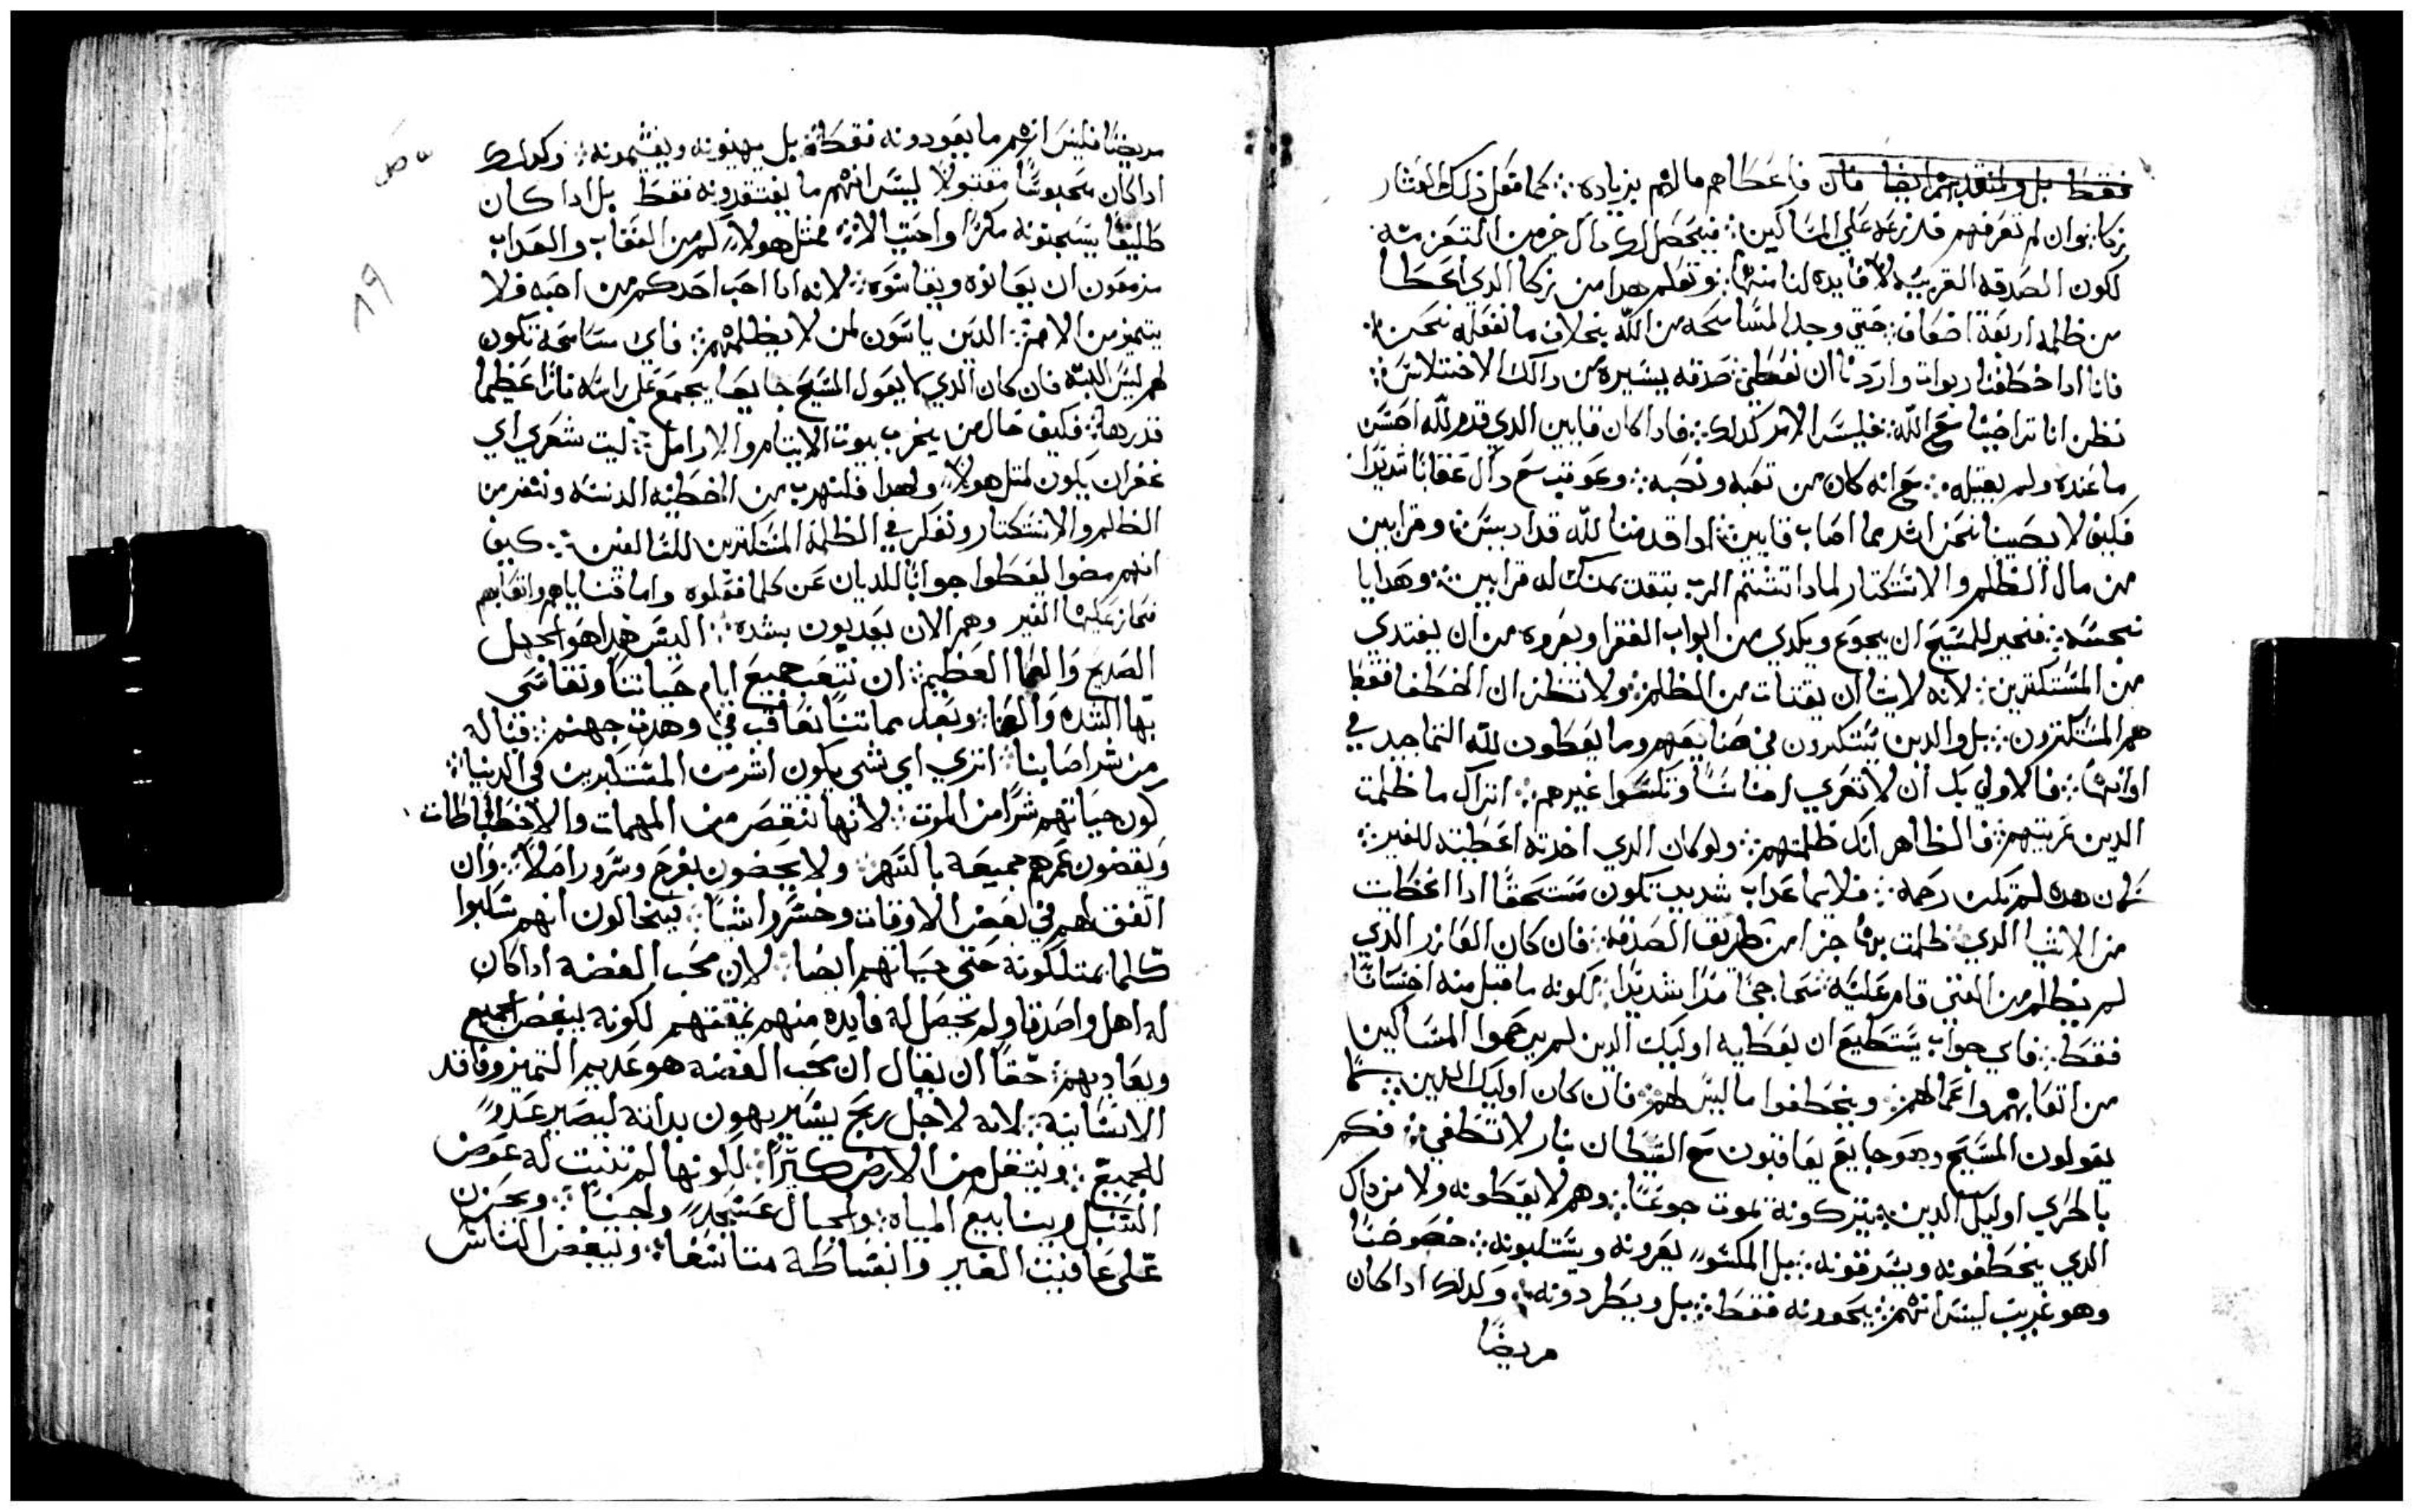 فقط بل ولنتقدمهم ايضا فان فاعطاهم مالهم بزياده ܀ كما فعل ذلك العشار
زكا ܀ وان لم تعرفهم فلنزعه على المساكين ܀ فيحصل لك دال جزمن التعزيه
لكون الصدقه الغريبه لا فايده لنا منها ܀ ونعلم هدا من زكا الدي اعطا
من ظلمه اربعة اضعاف ܀ حتي وجد المسامحه من الله بخلاف ما نفعله نحن ܀
فانا ادا خطفنا ربوات واردنا ان نعطي صدقه يسيره من دالك الاختلاس ܀
نظن انا تراضينا مع الله ܀ فليس الامر كدلك ܀ فادا كان قايين الدي قدم لله احسن
ما عنده ولم يقبله ܀ مع انه كان من تعبه ونصبه ܀ وعوقب مع دال عقابا شديدا
فكيف لا يصيبنا نحن اشد مما اصاب قايين ܀ ادا قدمنا لله قدادیس وقرابين
من مال الظلم والاستكتار لمادا تشتم الرب بتقدمتك له قرابين ܀ وهدايا
نجسه ܀ فنخير للمسيح ان يجوع ويكدي من ابواب الفقرا ويعروه من ان يغتدي
من المستكترين ܀ لانه لا يشا ان يقتات من الظلم ܀ ولا تظن ان الخطفا فقط
هم المستكترون ܀ بل والدين يستكترون في صنايعهم وما يعطون لله التماجيد في
اوانها ܀ فالاولي بك ان لا تعري اناسا وتكسوا غيرهم ܀ اتراك ما ظلمت
الدين عريتهم ܀ فالظاهر انك ظلمتهم ܀ ولو كان الدي اخدته اعطيته للغير ܀
كان هده لم تكن رحمه ܀ فلايما عداب شديد تكون مستحقا ادا اعطيت
من الاشيا الدي ظلمت بها جزا من طريق الصدقه ܀ فان كان العازر الدي
لم يظلم من الغني قام عليه محاججا مدا شديدا ܀ لكونه ما قبل منه احسانا
فقط ܀ فاي جواب يستطيع ان يعطيه اوليك الدين لم يرحموا المساكين
من اتعابهم واعمالهم ܀ ويخطفوا ما ليس لهم ܀ فان كان اوليك الدين ܀ كما
يقولون المسيح وهو جايع يعاقبون مع الشيطان بنار لا تطفي ܀ فكم
بالحري اوليك الدين يتركونه يموت جوعا ܀ وهم لا يعطونه ولا من داك
الدي يخطفونه ويسرقونه ܀ بل المكسو يعرونه ويستلبونه ܀ خصوصا
وهو غريب ليس انهم ܀ يحوونه فقط ܀ بل ويطردونه ܀ وكدلك ادا كان
مريضا
مريضا فليس انهم ما يعودونه فقط ܀ بل يهينونه ويغشمونه ܀ وكدلك
ادا كان محبوسا مقتولا ليس انهم ما يفتقدونه فقط بل ادا كان
طليقا يسجنونه مكرا واحتيالا ܀ فمتل هولا كم من العقاب والعداب
مزمعون ان يعانوه ويقاسوه ܀ لانه ادا احب احدكم من احبه فلا
يتميز من الامم ܀ الدين ياسون لمن لا يظلمهم ܀ فاي مسامحة تكون
لهم ليس البته فان كان الدي ما يعول المسيح جايعا يجمع على راسه نارا عظيما
قدرها ܀ فكيف حال من يخرب بيوت الايتام والارامل ܀ ليت شعري اي
غفران يكون لمتل هولا ولهدا فلنهرب من الخطيه الدنسه وننفر من
الظلم والاستكتار ونفكر في الظلمة المستكترين السالفين ܀ كيف
انهم مضوا ليعطوا جوابا للديان عن كلما فعلوه واما قناياهم واتعابهم
فحاز عليها الغير وهم الان يعدبون بشده ܀ اليس هدا هو الجهل
الصريح والعما العظيم ܀ ان نتعب جميع ايام حياتنا ونقاسي
بها الشده والعنا ܀ وبعد مماتنا نعاقب في وهدت جهنم ܀ فياله
من شر اصابنا ܀ اتري اي شي يكون اشر من المستكبرين في الدنيا ܀
كون حياتهم شرا من الموت ܀ لانها تنقص من المهمات والاختباطات
ويقضون عمرهم جميعه بالسهر ܀ ولا يحضون بفرح وسرور اصلا ܀ وان
اتفق لهم في بعض الاوقات وخسروا شيا ܀ فيخالون انهم سلبوا
كلما يمتلكونه حتى حياتهم ايضا ܀ لان محب الفضه ادا كان
له اهل واصدقا ولم تحصل له فايده منهم يمقتهم لكونه يبغض الجميع
ويعاديهم ܀ حقا ان يقال ان محب الفضه هو عديم التميز وفاقد
الانسانيه ܀ لانه لاجل ربح يسير يهون بداته ليصير عدو
للجميع ܀ وينتقل من الارض كتيرا ܀ لكونها لم تنبت له عوض
السنبل وينابيع المياه والجبال عسجد ولجينا ܀ ويحزن
على عافيت الغير وانبساطه متاسفا ܀ ويبغض الناس
٨٩